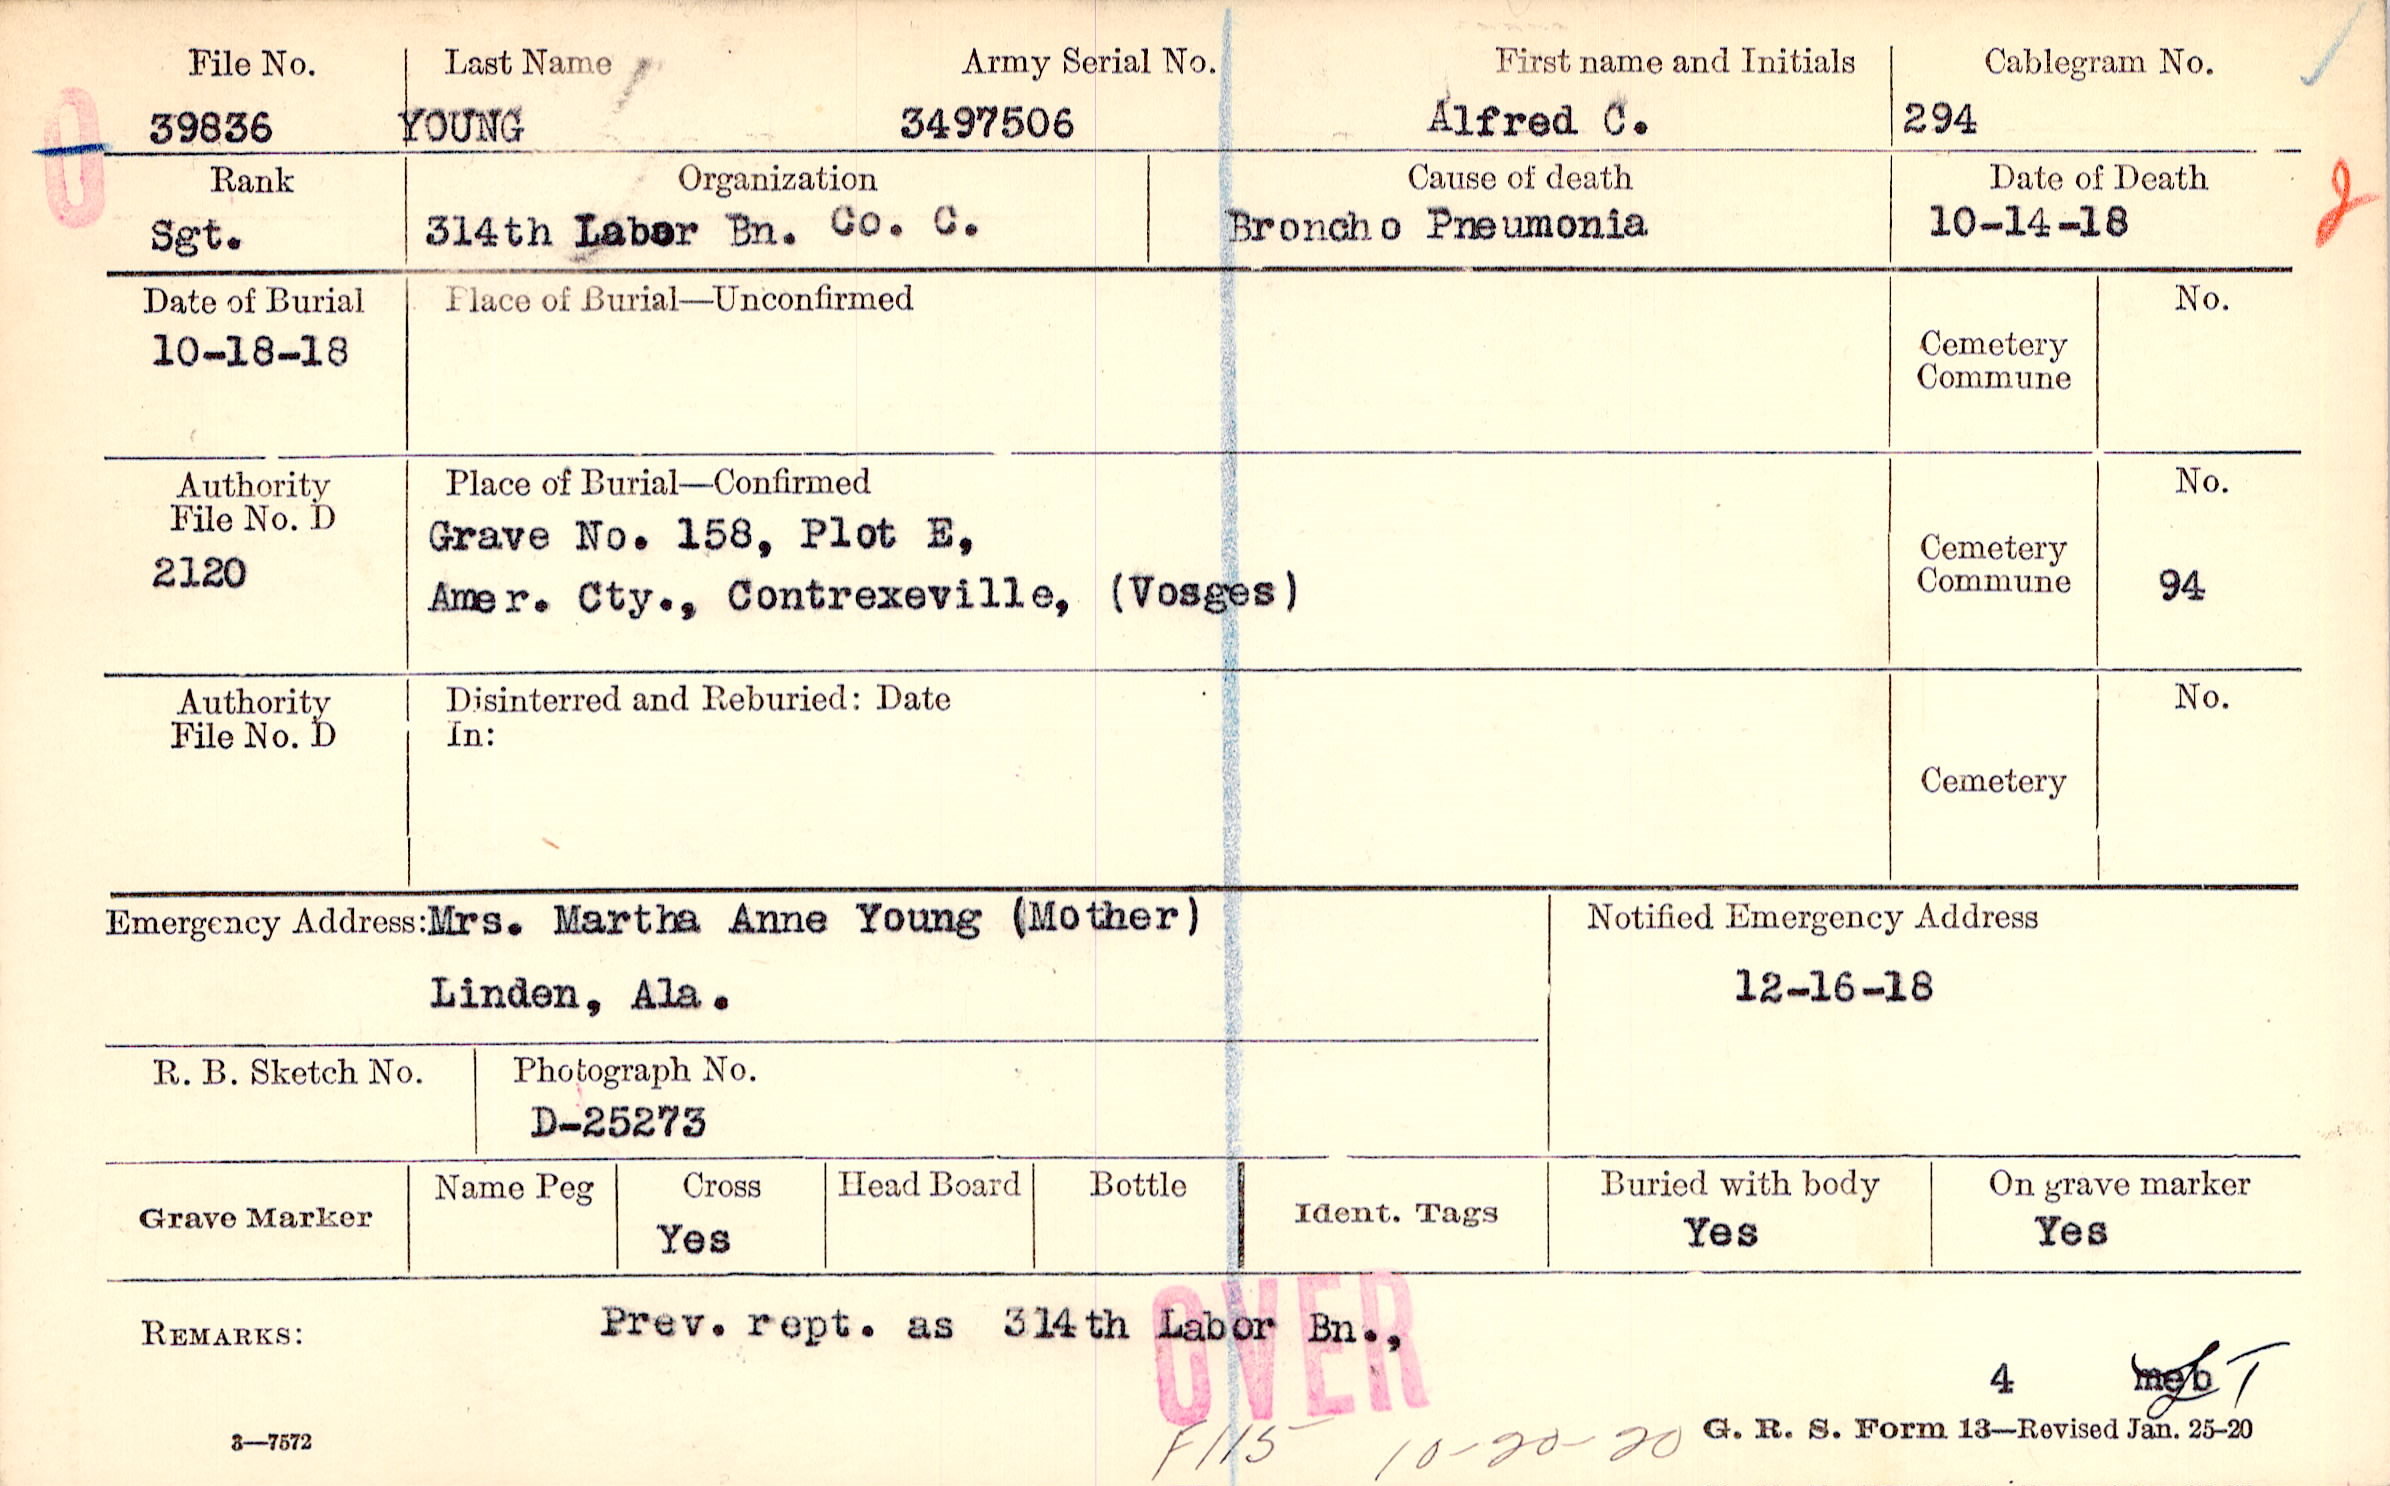 File No. Last Name Army Serial No. First name and Initials Cablegram No.
39836 YOUNG 3497506 Alfred C. 294
O
Rank Organization Cause of death Date of Death
Sgt. 314th Labor Bn. Co. C. Broncho Pneumonia 10-14-18
2
Date of Burial Place of Burial—Unconfirmed No.
10-18-18
Cemetery
Commune
Authority Place of Burial—Confirmed No.
File No. D
Grave No. 158, Plot E,
2120
Cemetery
Commune 94
Amer. Cty., Contrexeville, (Vosges)
Authority Disinterred and Reburied: Date No.
File No. D In:
Cemetery
Emergency Address: Mrs. Martha Anne Young (Mother) Notified Emergency Address
Linden, Ala. 12-16-18
R. B. Sketch No. Photograph No.
D-25273
Grave Marker Name Peg Cross Head Board Bottle Ident. Tags Buried with body On grave marker
Yes Yes Yes
REMARKS: Prev. rept. as 314th Labor Bn.,
OVER
4 meb
F115 10-20-20
3—7572 G. R. S. Form 13—Revised Jan. 25-20